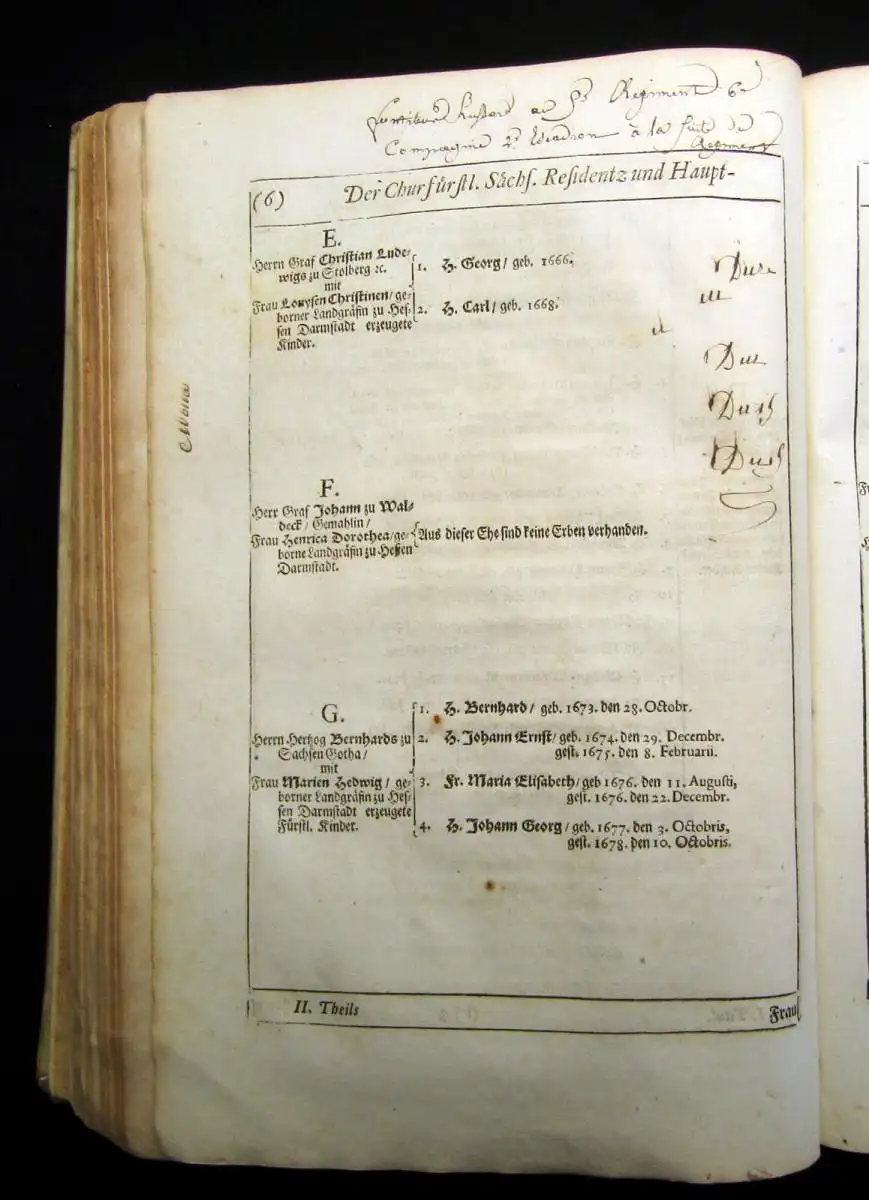 Regiment 6e
Compagnie 2e à la suite de
Regiment
(6) Der Churfürstl. Sächs. Residentz und Haupt-
E.
Herrn Graf Christian Lude-
wigs zu Stolberg ꝛc.
mit
Frau Louysen Christinen/ ge-
borner Landgräfin zu Hes-
sen Darmstadt erzeugete
Kinder.
1. H. Georg/ geb. 1666.
2. H. Carl/ geb. 1668.
Dure
Du
F.
Herr Graf Johann zu Wal-
deck/ Gemahlin/
Frau Henrica Dorothea/ ge-
borne Landgräfin zu Hessen
Darmstadt.
Aus dieser Ehe sind keine Erben verhanden.
G.
Herrn Hertzog Bernhards zu
Sachsen Gotha/
mit
Frau Marien Hedwig/ ge-
borner Landgräfin zu Hes-
sen Darmstadt erzeugete
Fürstl. Kinder.
1. H. Bernhard/ geb. 1673. den 28. Octobr.
2. H. Johann Ernst/ geb. 1674. den 29. Decembr.
gest. 1675. den 8. Februarii.
3. Fr. Maria Elisabeth/ geb 1676. den 11. Augusti,
gest. 1676. den 22. Decembr.
4. H. Johann Georg/ geb. 1677. den 3. Octobris,
gest. 1678. den 10. Octobris.
II. Theils
Frau